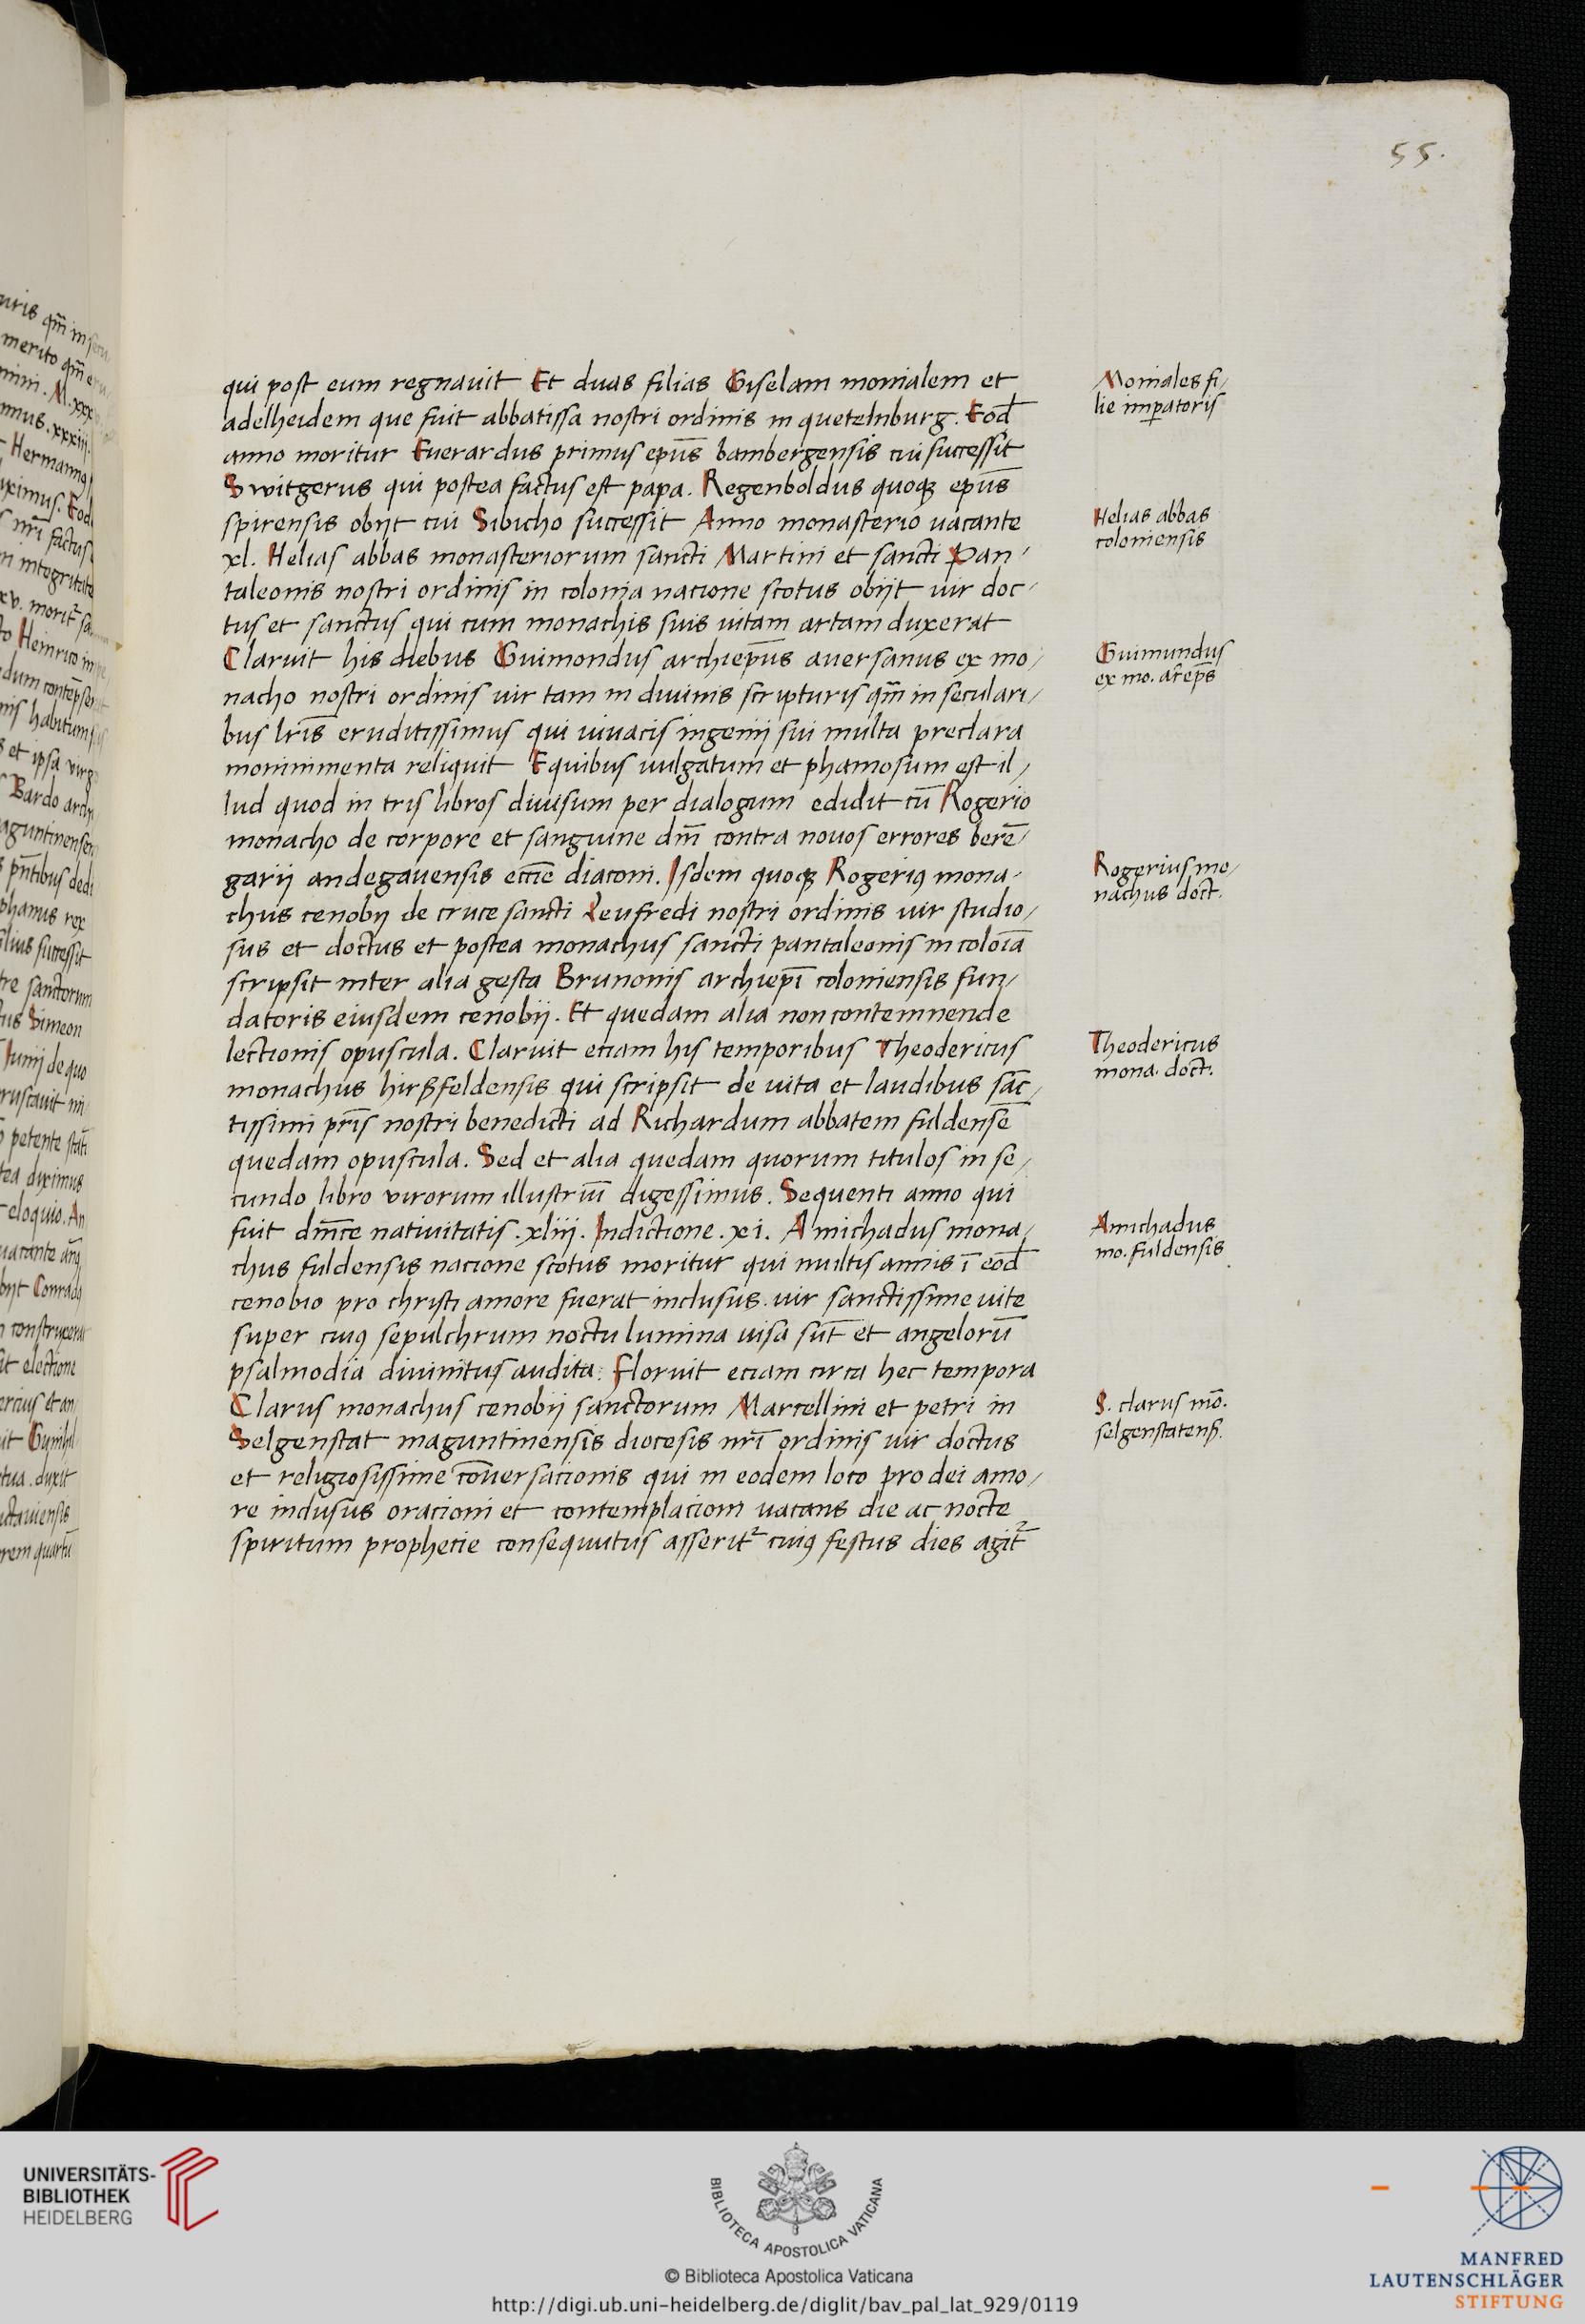 55.
qui post eum regnauit Et duas filias Giselam monialem et
adelheidem que fuit abbatissa nostri ordinis in quetelnburg. Eod̄
anno moritur Euerardus primus ep̄us bambergensis cui successit
Switgerus qui postea factus est papa. Regenboldus quoqꝫ ep̄us
spirensis obijt cui Sibicho successit Anno monasterio uacante
xl. Helias abbas monasteriorum sancti Martini et sancti Pan-
taleonis nostri ordinis in colonia nacione scotus obijt uir doc-
tus et sanctus qui cum monachis suis uitam artam duxerat
Claruit his diebus Guimondus archiep̄us auersanus ex mo/
nacho nostri ordinis uir tam in diuinis scripturis qm̄ in seculari/
bus lr̄is eruditissimus qui uiuacis ingenij sui multa preclara
monimmenta reliquit Equibus uulgatum et phamosum est il/
lud quod in tris libros diuisum per dialogum edidit cū Rogerio
monacho de corpore et sanguine dn̄i contra nouos errores berē/
garij andegauensis eccl̄ie diaconi. Isdem quoqꝫ Rogeriꝰ mona-
chus cenobij de cruce sancti Leufredi nostri ordinis uir studio/
sus et doctus et postea monachus sancti pantaleonis in coloīa
scripsit inter alia gesta Brunonis archiep̄i coloniensis fun/
datoris eiusdem cenobij. Et quedam alia non contemnende
lectionis opuscula. Claruit eciam his temporibus Theodericus
monachus hirßfeldensis qui scripsit de uita et laudibus sāc/
tissimi pr̄is nostri benedicti ad Richardum abbatem fuldensē
quedam opuscula. Sed et alia quedam quorum titulos in se/
cundo libro virorum illustriū digessimus. Sequenti anno qui
fuit dn̄ice natiuitatis .xliij. Indictione .xi. Amichadus mona/
chus fuldensis nacione scotus moritur qui multis annis ī eod̄
cenobio pro christi amore fuerat inclusus. uir sanctissime uite
super cuiꝰ sepulchrum noctu lumina uisa sūt et angelorū
psalmodia diuinitus audita: Floruit eciam circa hec tempora
Clarus monachus cenobij sanctorum Marcellini et petri in
Selgenstat maguntinensis diocesis nr̄i ordinis uir doctus
et religiosissime cōuersacionis qui in eodem loco pro dei amo/
re inclusus oracioni et contemplacioni uacans die ac nocte
spiritum prophetie consequutus asserit᷑ cuiꝰ festus dies agit᷑
Moniales fi/
lie imꝑatoris
Helias abbas
coloniensis
Guimundus
ex mo. ar̄ep̄s
Rogerius mo/
nachus doct.
Theodericus
mona. doct.
Amichadus
mo. fuldensis
S. clarus mō.
selgenstatenß.
UNIVERSITÄTS-
BIBLIOTHEK
HEIDELBERG
BIBLIOTECA APOSTOLICA VATICANA
© Biblioteca Apostolica Vaticana
http://digi.ub.uni-heidelberg.de/diglit/bav_pal_lat_929/0119
MANFRED
LAUTENSCHLÄGER
STIFTUNG